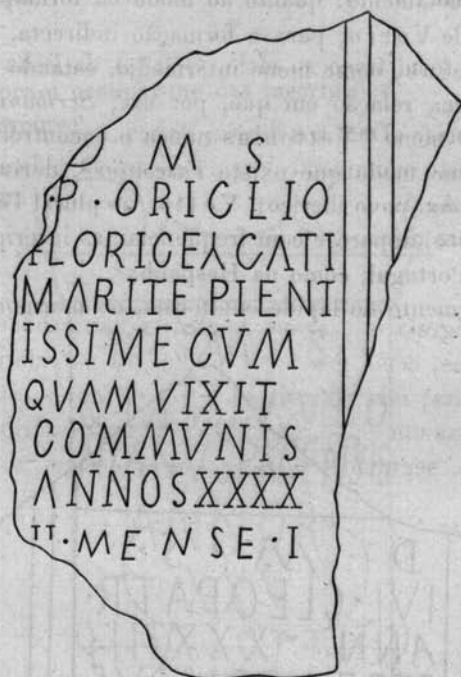 M S
·P·ORIGLIO
FLORICEACATI
MARITEPIENT
ISSIME CVM
QVAMVIXIT
COMMVNIS
ANNOSXXXX
TT·MENSE·I